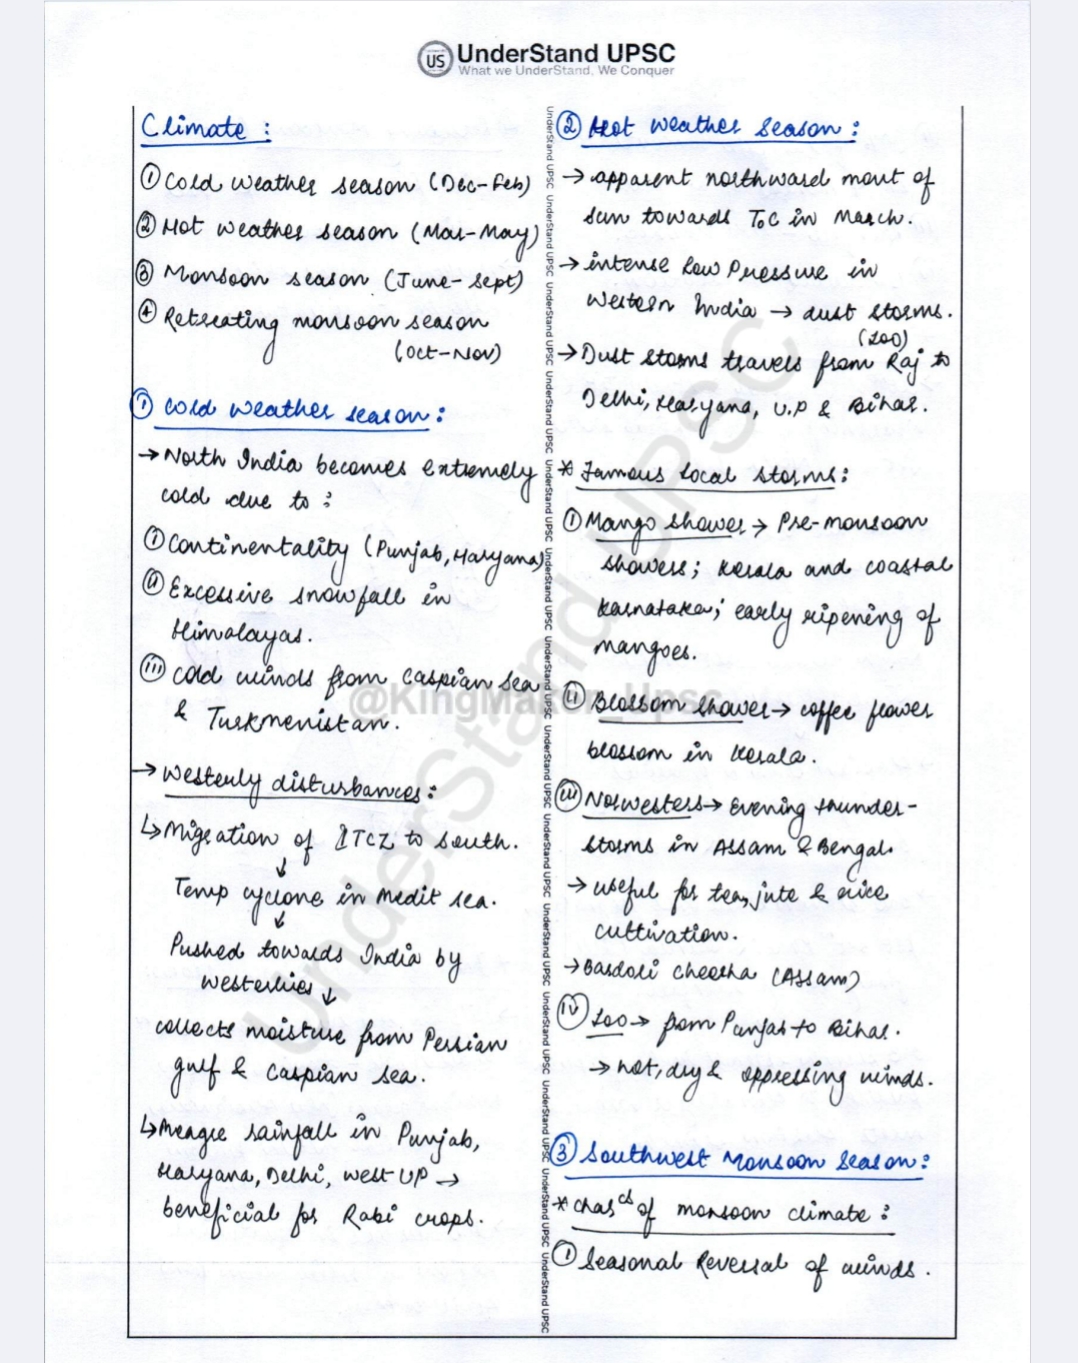 US UnderStand UPSC
What we UnderStand, We Conquer
Climate :
① Cold weather season (Dec-Feb)
② Hot weather season (Mar-May)
③ Monsoon season (June-Sept)
④ Retreating monsoon season
(Oct-Nov)
① Cold weather season :
→ North India becomes extremely
cold due to :
ⓘ Continentality (Punjab, Haryana)
ⓘⓘ Excessive snowfall in
Himalayas.
(iii) cold winds from Caspian Sea
& Turkmenistan.
→ Westerly disturbances :
↳ Migration of ITCZ to south.
↓
Temp cyclone in Medit sea.
↓
Pushed towards India by
westerlies ↓
collects moisture from Persian
gulf & Caspian sea.
↳ Meagre rainfall in Punjab,
Haryana, Delhi, west UP →
beneficial for Rabi crops.
② Hot weather season :
→ apparent northward movt of
sun towards ToC in March.
→ intense low Pressure in
Western India → dust storms.
(Loo)
→ Dust storms travels from Raj to
Delhi, Haryana, U.P & Bihar.
* Famous local storms :
ⓘ Mango shower → Pre-monsoon
showers; Kerala and coastal
Karnataka; early ripening of
mangoes.
(ii) Blossom shower → coffee flower
blossom in Kerala.
(iii) Norwesters → Evening thunder-
storms in Assam & Bengal.
→ useful for tea, jute & rice
cultivation.
→ Bardoli Cheerha (Assam)
(iv) Loo → from Punjab to Bihar.
→ hot, dry & oppressing winds.
③ Southwest Monsoon Season :
* Charcs of monsoon climate :
① Seasonal Reversal of winds.
@KingMaker_Upsc
UnderStand UPSC